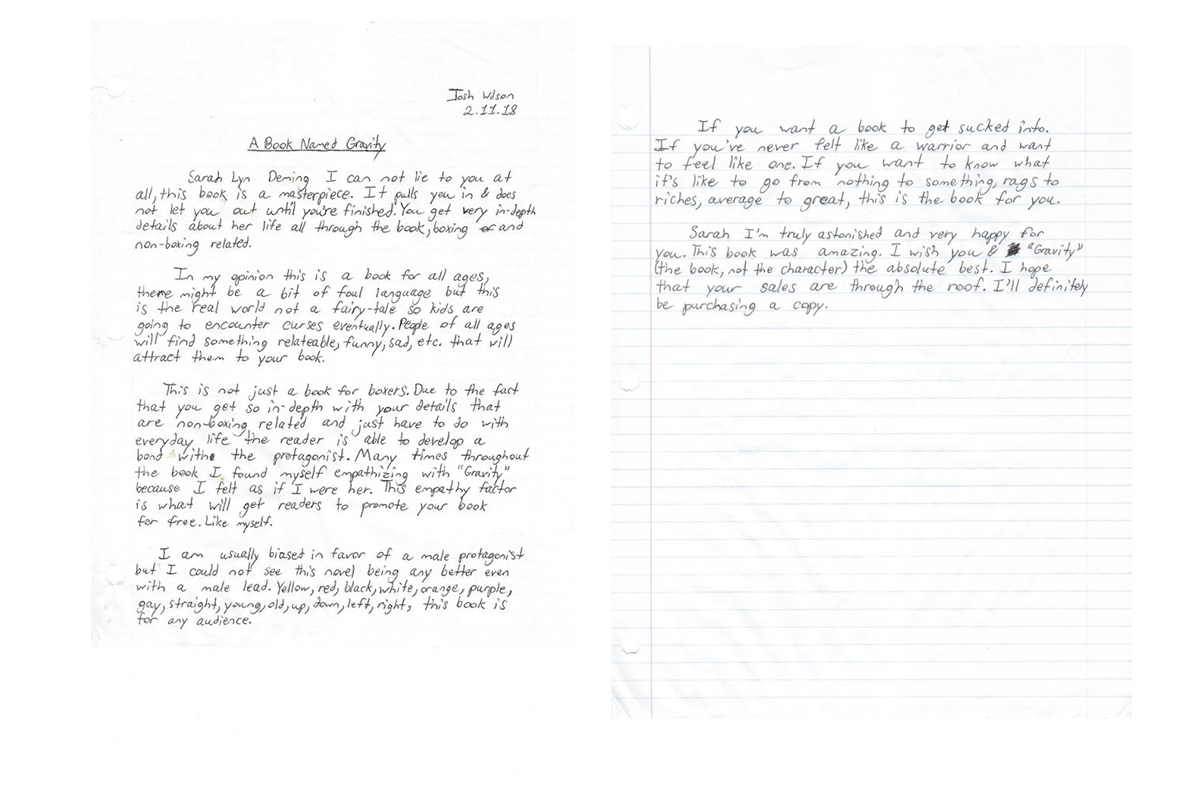 Josh Wilson
2.11.18
A Book Named Gravity
Sarah Lyn Deming I can not lie to you at
all, this book is a masterpiece. It pulls you in & does
not let you out until you're finished. You get very in-depth
details about her life all through the book, boxing and
non-boxing related.
In my opinion this is a book for all ages,
there might be a bit of foul language but this
is the real world not a fairy-tale so kids are
going to encounter curses eventually. People of all ages
will find something relateable, funny, sad, etc. that will
attract them to your book.
This is not just a book for boxers. Due to the fact
that you get so in-depth with your details that
are non-boxing related and just have to do with
everyday life the reader is able to develop a
bond with the protagonist. Many times throughout
the book I found myself empathizing with "Gravity"
because I felt as if I were her. This empathy factor
is what will get readers to promote your book
for free. Like myself.
I am usually biased in favor of a male protagonist
but I could not see this novel being any better even
with a male lead. Yellow, red, black, white, orange, purple,
gay, straight, young, old, up, down, left, right, this book is
for any audience.
If you want a book to get sucked into.
If you've never felt like a warrior and want
to feel like one. If you want to know what
it's like to go from nothing to something, rags to
riches, average to great, this is the book for you.
Sarah I'm truly astonished and very happy for
you. This book was amazing. I wish you & "Gravity"
(the book, not the character) the absolute best. I hope
that your sales are through the roof. I'll definitely
be purchasing a copy.